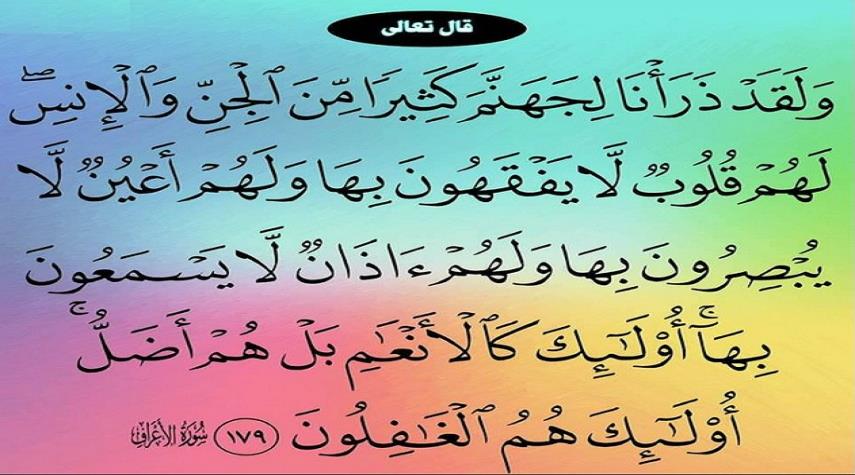 قال تعالى
وَلَقَدْ ذَرَأْنَا لِجَهَنَّمَ كَثِيرًا مِّنَ ٱلْجِنِّ وَٱلْإِنسِ ۖ
لَهُمْ قُلُوبٌ لَّا يَفْقَهُونَ بِهَا وَلَهُمْ أَعْيُنٌ لَّا
يُبْصِرُونَ بِهَا وَلَهُمْ ءَاذَانٌ لَّا يَسْمَعُونَ
بِهَآ ۚ أُو۟لَٰٓئِكَ كَٱلْأَنْعَٰمِ بَلْ هُمْ أَضَلُّ ۚ
أُو۟لَٰٓئِكَ هُمُ ٱلْغَٰفِلُونَ ١٧٩ سُورَةُ الأَعْرَافِ